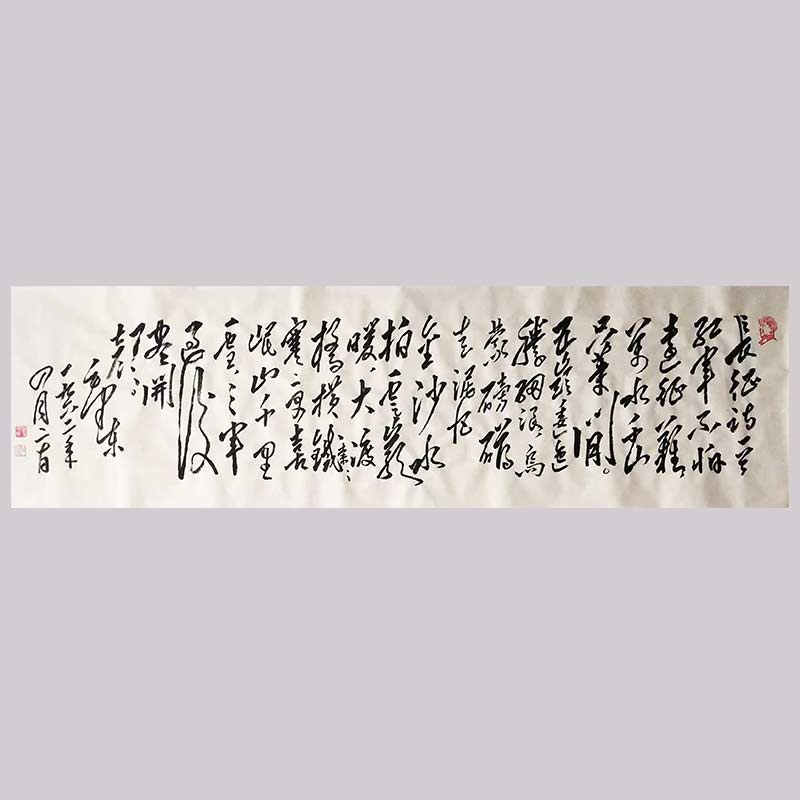 長征詩一首
紅軍不怕
遠征難
萬水千山
只等閒。
五嶺逶迤
騰細浪烏
蒙磅礴
走泥丸
金沙水
拍雲崖
暖,大渡
橋橫鐵索
寒。更喜
岷山千里
雪,三軍
過後
盡開
顏。
毛澤東
一九六二年
四月二十日